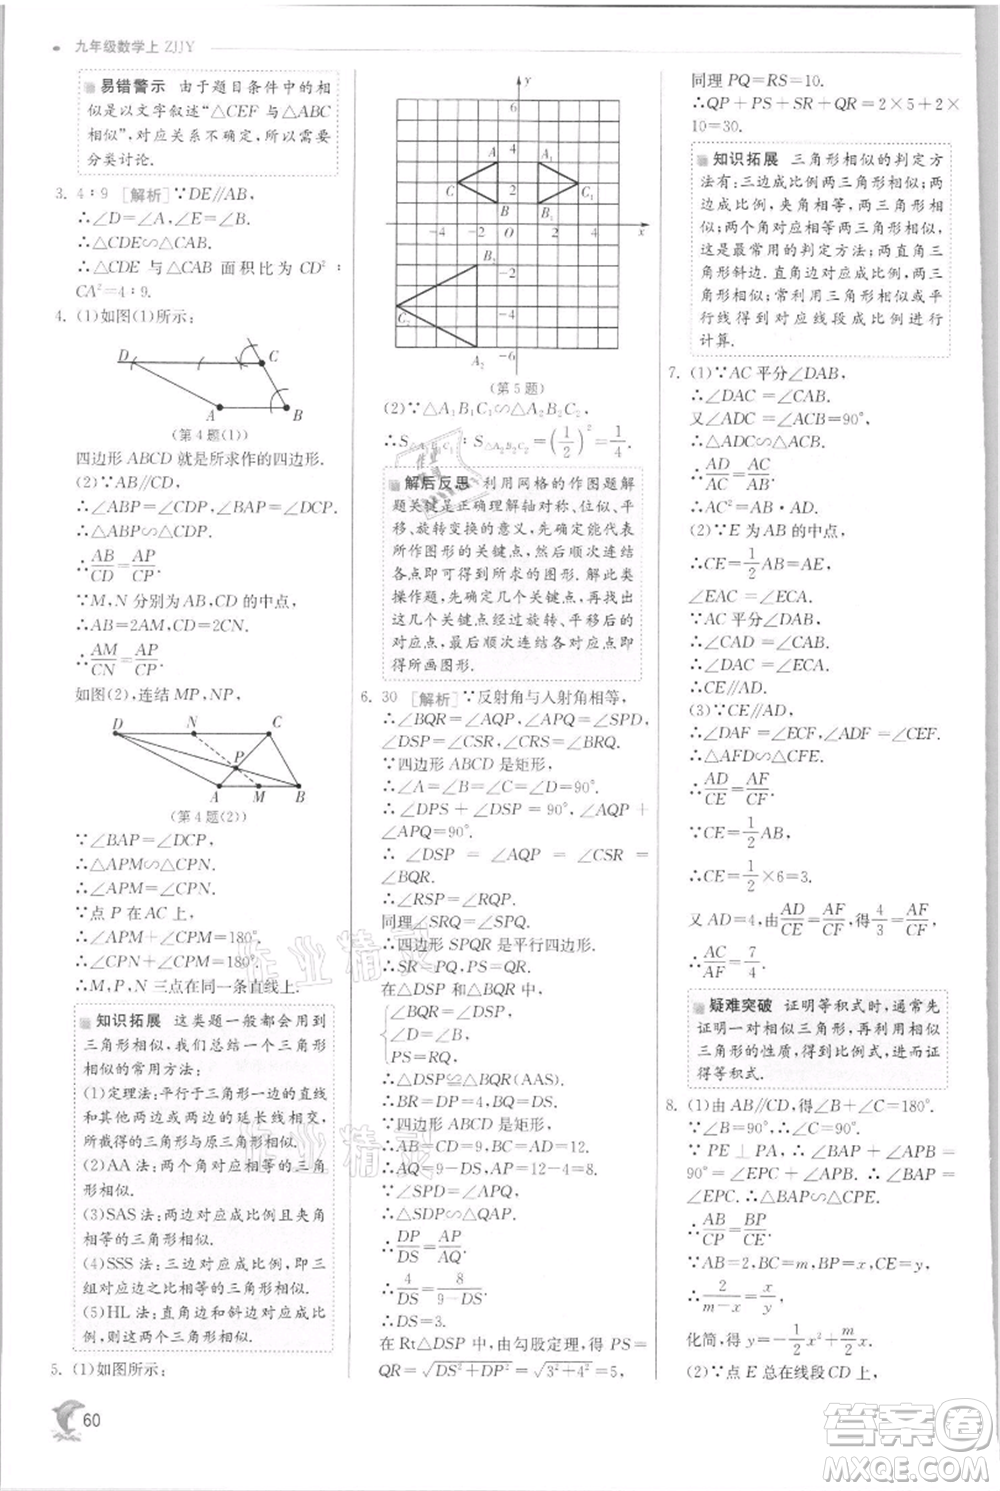 九年级数学上 ZJJY
易错警示 由于题目条件中的相
似是以文字叙述“△CEF 与△ABC
相似”,对应关系不确定,所以需要
分类讨论.
3. 4∶9 [解析]∵DE//AB,
∴∠D=∠A,∠E=∠B.
∴△CDE∽△CAB.
∴△CDE 与△CAB 面积比为 CD²∶
CA²=4∶9.
4. (1)如图(1)所示:
D
C
A
B
(第 4 题(1))
四边形 ABCD 就是所求作的四边形.
(2)∵AB//CD,
∴∠ABP=∠CDP,∠BAP=∠DCP.
∴△ABP∽△CDP.
∴AB/CD=AP/CP.
∵M,N 分别为 AB,CD 的中点,
∴AB=2AM,CD=2CN.
∴AM/CN=AP/CP.
如图(2),连结 MP,NP,
D N C
P
A M B
(第 4 题(2))
∵∠BAP=∠DCP,
∴△APM∽△CPN.
∴∠APM=∠CPN.
∵点 P 在 AC 上,
∴∠APM+∠CPM=180°.
∴∠CPN+∠CPM=180°.
∴M,P,N 三点在同一条直线上.
知识拓展 这类题一般都会用到
三角形相似,我们总结一个三角形
相似的常用方法:
(1)定理法:平行于三角形一边的直线
和其他两边或两边的延长线相交,
所构成的三角形与原三角形相似.
(2)AA 法:两个角对应相等的三角
形相似.
(3)SAS 法:两边对应成比例且夹角
相等的三角形相似.
(4)SSS 法:三边对应成比例,即三
组对应边之比相等的三角形相似.
(5)HL 法:直角边和斜边对应成比
例,则这两个直角三角形相似.
5. (1)如图所示:
60
y
6
4
A A₁
C 2 C₁
B B₁
−4 −2 O 2 4 x
B₂ −2
C₂ −4
A₂ −6
(第 5 题)
(2)∵△A₁B₁C₁∽△A₂B₂C₂,
∴S△A₁B₁C₁∶S△A₂B₂C₂=(1/2)²=1/4.
解后反思 利用网格的作图题解
题关键是正确理解轴对称、位似、平
移、旋转变换的意义,先确定能代表
所作图形的关键点,然后顺次连结
各点即可得到所求的图形. 解此类
操作题,一般先确定几个关键点,将
这几个关键点旋转、平移后的
对应点,最后顺次连结各对应点即
得所画图形.
6. 30 [解析]∵反射角与入射角相等,
∴∠BQR=∠AQP,∠APQ=∠SPD,
∠DSP=∠CSR,∠CRS=∠BRQ.
∵四边形 ABCD 是矩形,
∴∠A=∠B=∠C=∠D=90°.
∴∠DPS+∠DSP=90°,∠AQP+
∠APQ=90°.
∴∠DSP=∠AQP=∠CSR=
∠BQR.
∴∠RSP=∠RQP.
同理∠SRQ=∠SPQ.
∴四边形 SPQR 是平行四边形.
∴SR=PQ,PS=QR.
在△DSP 和△BQR 中,
∠BQR=∠DSP,
∠D=∠B,
PS=RQ,
∴△DSP≌△BQR(AAS).
∴BR=DP=4,BQ=DS.
∵四边形 ABCD 是矩形,
∴AB=CD=9,BC=AD=12.
∴AQ=9-DS,AP=12-4=8.
∵∠SPD=∠APQ,
∴△SDP∽△QAP.
∴DP/DS=AP/AQ.
∴4/DS=8/(9-DS).
∴DS=3.
在 Rt△DSP 中,由勾股定理,得 PS=
QR=√(DS²+DP²)=√(3²+4²)=5,
同理 PQ=RS=10.
∴QP+PS+SR+QR=2×5+2×
10=30.
知识拓展 三角形相似的判定方
法有:三边成比例两三角形相似;两
边对应成比例,夹角相等,两三角形
相似;两个角对应相等两三角形相似,
这是最常用的判定方法;两直角三
角形斜边.直角边对应成比例,两直
角三角形相似.
常利用三角形相似或平
行线得到对应线段成比例进行
计算.
7. (1)∵AC 平分∠DAB,
∴∠DAC=∠CAB.
又∠ADC=∠ACB=90°,
∴△ADC∽△ACB.
∴AD/AC=AC/AB.
∴AC²=AB·AD.
(2)∵E 为 AB 的中点,
∴CE=1/2AB=AE,
∠EAC=∠ECA.
∵AC 平分∠DAB,
∴∠CAD=∠CAB.
∴∠DAC=∠ECA.
∴CE//AD.
(3)∵CE//AD,
∴∠DAF=∠ECF,∠ADF=∠CEF.
∴△AFD∽△CFE.
∴AD/CE=AF/CF.
∵CE=1/2AB,
∴CE=1/2×6=3.
又 AD=4,由AD/CE=AF/CF,得4/3=AF/CF,
∴AC/AF=7/4.
疑难突破 证明等积式时,通常先
证明一对相似三角形,再利用相似
三角形的性质,得到比例式,进而证
得等积式.
8. (1)由 AB//CD,得∠B+∠C=180°.
∵∠B=90°,∴∠C=90°.
∵PE⊥PA,∴∠APB+∠EPC=
90°=∠EPC+∠APB.∴∠BAP=
∠EPC.∴△ABP∽△PCE.
∴AB/CP=BP/CE.
∵AB=2,BC=m,BP=x,CE=y,
∴2/(m-x)=x/y.
化简,得 y=-1/2x²+m/2x.
(2)∵点 E 总在线段 CD 上,
作业精灵
作业精灵
答案圈
MXQE.COM